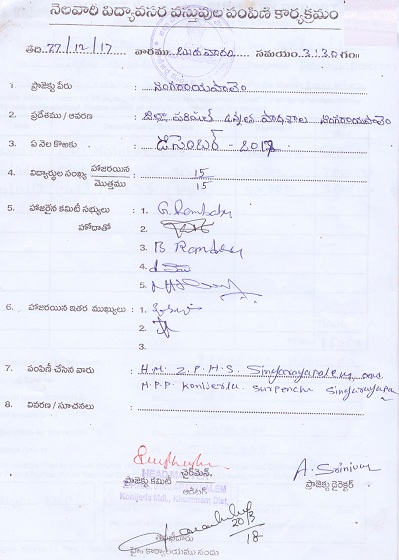 నెలవారి విద్యావసర వస్తువుల పంపిణి కార్యక్రమం
తేది: 27/12/17 వారము బుధవారం సమయం: 3:30గం॥
1. ప్రాజెక్టు పేరు : సింగరాయపాలెం
2. ప్రదేశము / ఆవరణ : జిల్లా పరిషత్ ఉన్నత పాఠశాల సింగరాయపాలెం
3. ఏ నెల కొఱకు : డిసెంబర్ - 2017
4. విద్యార్థుల సంఖ్య హాజరయిన : 15
మొత్తము 15
5. హాజరైన కమిటీ సభ్యులు : 1. G. Rambabu
హోదాతో 2.
3. B Ramdas
4.
5.
6. హాజరయిన ఇతర ముఖ్యులు : 1.
2.
3.
7. పంపిణీ చేసిన వారు : H.M. Z.P.H.S. Singarayapalem, and
M.P.P Konijerla surpench Singarayapa
8. వివరణ / సూచనలు :
చైర్‌మెన్
ప్రాజెక్టు కమిటీ
HEAD MASTER
Konijerla Mdl., Khammam Dist
A. Srinivas
ప్రాజెక్టు డైరెక్టర్
20/3
18